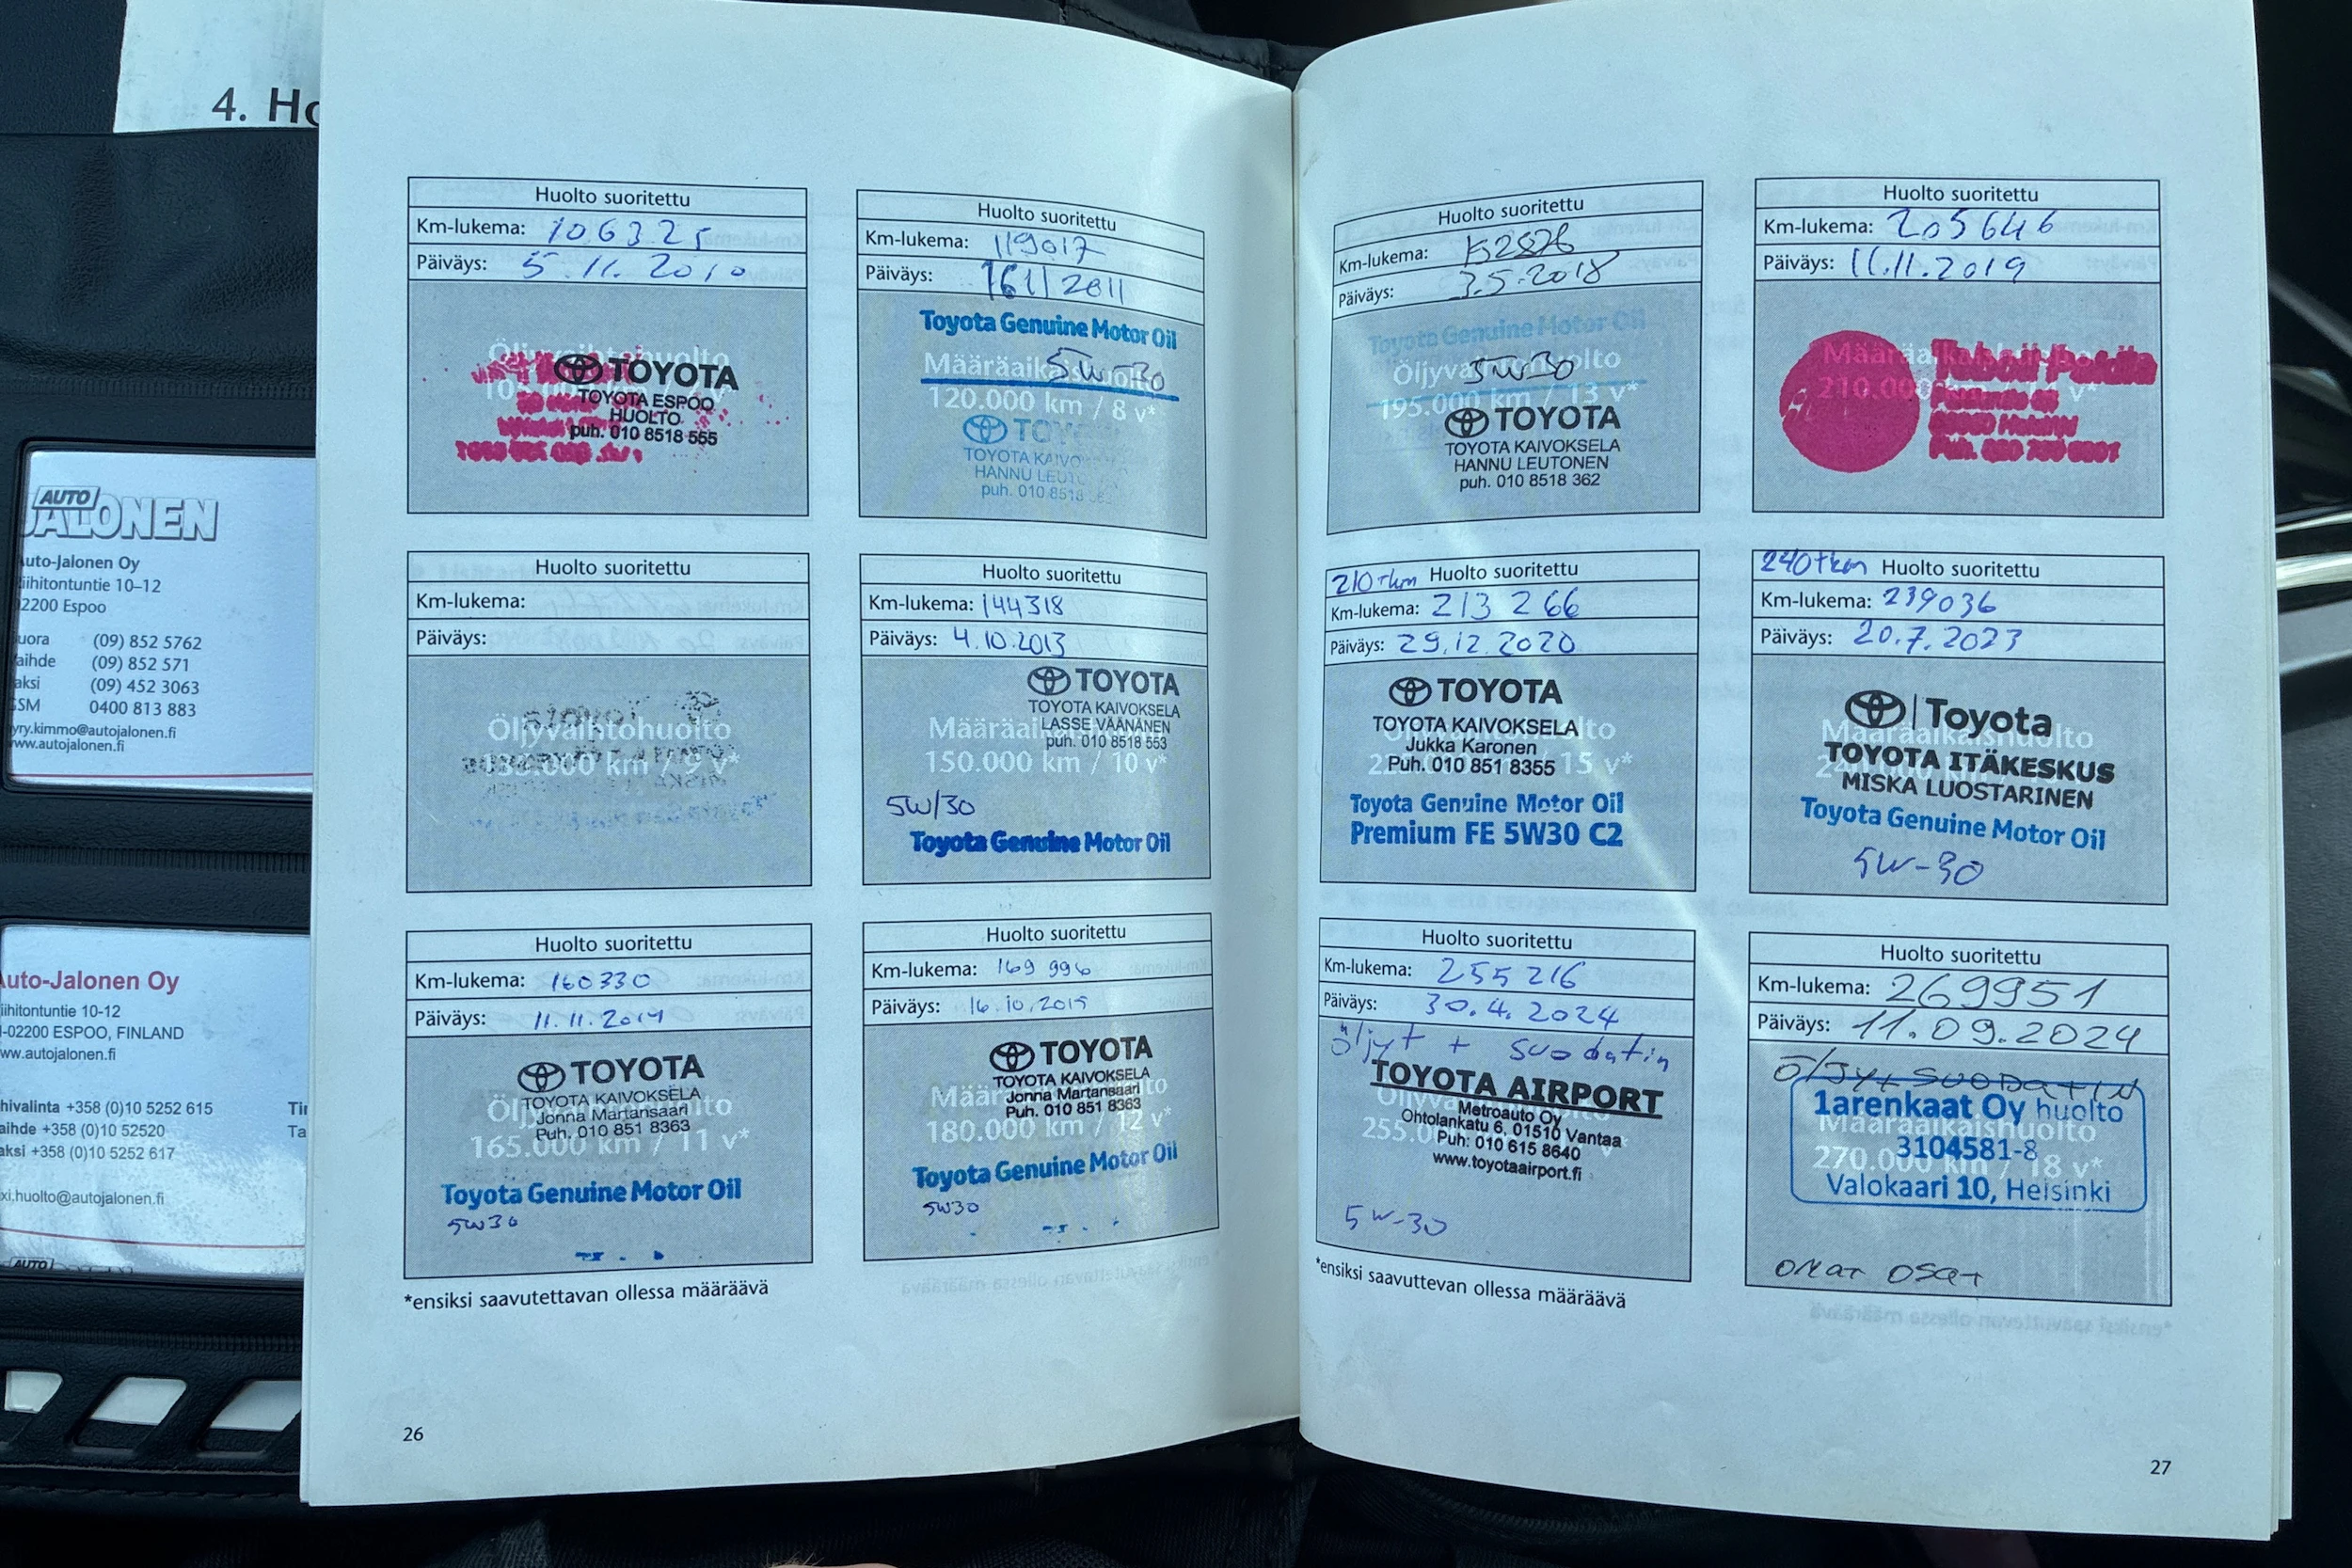 4. Ho
AUTO
JALONEN
uto-Jalonen Oy
iihitontuntie 10-12
2200 Espoo
uora (09) 852 5762
aihde (09) 852 571
aksi (09) 452 3063
SM 0400 813 883
yry.kimmo@autojalonen.fi
ww.autojalonen.fi
uto-Jalonen Oy
iihitontuntie 10-12
-02200 ESPOO, FINLAND
ww.autojalonen.fi
hivalinta +358 (0)10 5252 615 Tir
aihde +358 (0)10 52520 Ta
aksi +358 (0)10 5252 617
xi.huolto@autojalonen.fi
AUTO
Huolto suoritettu
Km-lukema: 106325
Päiväys: 5.11.2010
Öljyvaihtohuolto
TOYOTA
TOYOTA ESPOO
HUOLTO
puh. 010 8518 555
Huolto suoritettu
Km-lukema: 119017
Päiväys: 16 11 2011
Toyota Genuine Motor Oil
Määräaikaishuolto
5W-30
120.000 km / 8 v*
TOYOTA
TOYOTA KAIVO
HANNU LEUT
puh. 010 8518
Huolto suoritettu
Km-lukema:
Päiväys:
Öljyvaihtohuolto
135.000 km / 9 v*
Huolto suoritettu
Km-lukema: 144318
Päiväys: 4.10.2013
TOYOTA
TOYOTA KAIVOKSELA
LASSE VÄÄNÄNEN
puh. 010 8518 553
Määräai
150.000 km / 10 v*
5W/30
Toyota Genuine Motor Oil
Huolto suoritettu
Km-lukema: 160330
Päiväys: 11.11.2014
TOYOTA
TOYOTA KAIVOKSELA
Jonna Martansaari
Puh. 010 851 8363
Öljyvaihtohuolto
165.000 km / 11 v*
Toyota Genuine Motor Oil
5W30
Huolto suoritettu
Km-lukema: 169 996
Päiväys: 16.10.2015
TOYOTA
TOYOTA KAIVOKSELA
Jonna Martansaari
Puh. 010 851 8363
Määräaikaishuolto
180.000 km / 12 v*
Toyota Genuine Motor Oil
5W30
*ensiksi saavutettavan ollessa määräävä
26
Huolto suoritettu
Km-lukema:
Päiväys: 3.5.2018
Toyota Genuine Motor Oil
Öljyvaihtohuolto
5W30
195.000 km / 13 v*
TOYOTA
TOYOTA KAIVOKSELA
HANNU LEUTONEN
puh. 010 8518 362
Huolto suoritettu
Km-lukema: 205646
Päiväys: 11.11.2019
Määräaikaishuolto
210.000
Huolto suoritettu
210 tkm
Km-lukema: 213 266
Päiväys: 29.12.2020
TOYOTA
TOYOTA KAIVOKSELA
Jukka Karonen
Puh. 010 851 8355
15 v*
Toyota Genuine Motor Oil
Premium FE 5W30 C2
240 tkm Huolto suoritettu
Km-lukema: 239036
Päiväys: 20.7.2023
Toyota
Määräaikaishuolto
TOYOTA ITÄKESKUS
MISKA LUOSTARINEN
Toyota Genuine Motor Oil
5W-30
Huolto suoritettu
Km-lukema: 255 216
Päiväys: 30.4.2024
öljyt + suodatin
TOYOTA AIRPORT
Metroauto Oy
Ohtolankatu 6, 01510 Vantaa
Puh: 010 615 8640
www.toyotaairport.fi
255.0
5W-30
Huolto suoritettu
Km-lukema: 269951
Päiväys: 11.09.2024
Öljyt SUODATIN
1arenkaat Oy huolto
Määräaikaishuolto
3104581-8
270.000 km / 18 v*
Valokaari 10, Helsinki
OMAT OSAT
*ensiksi saavuttevan ollessa määräävä
27